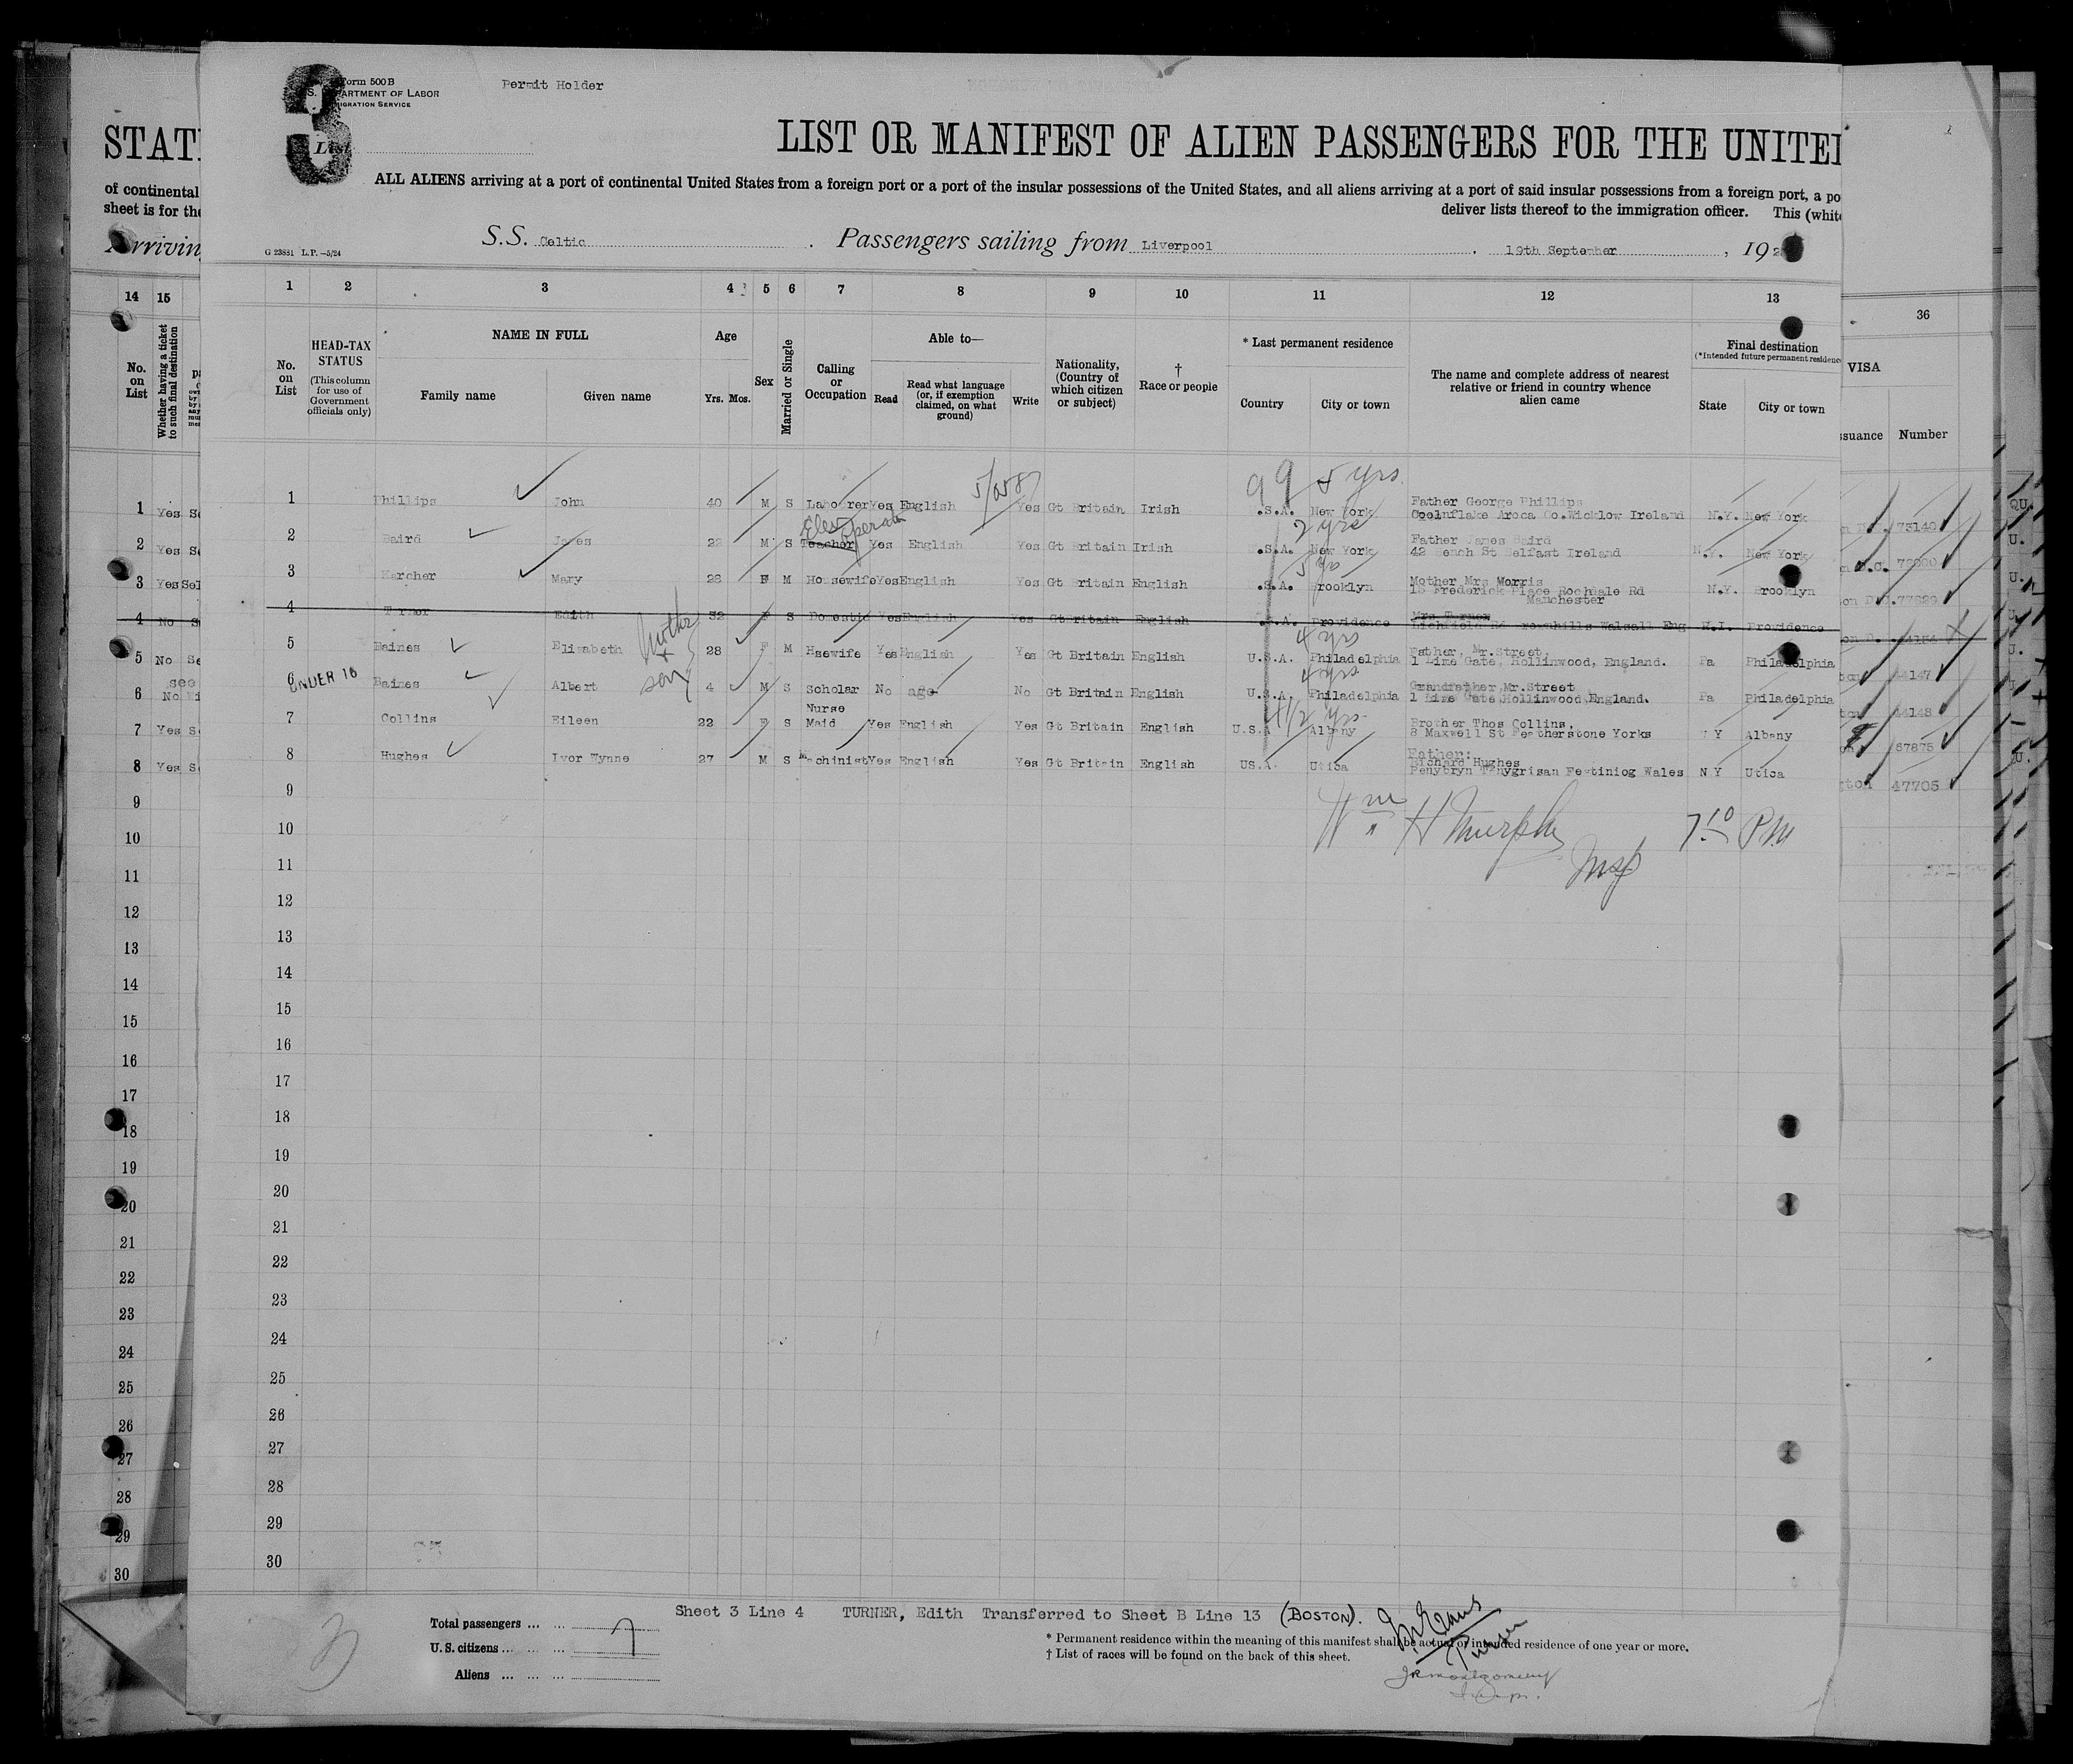 Form 500 B
Permit Holder
3
U. S. DEPARTMENT OF LABOR
IMMIGRATION SERVICE
List
LIST OR MANIFEST OF ALIEN PASSENGERS FOR THE UNITE
STAT
ALL ALIENS arriving at a port of continental United States from a foreign port or a port of the insular possessions of the United States, and all aliens arriving at a port of said insular possessions from a foreign port, a po
of continental
deliver lists thereof to the immigration officer. This (white
sheet is for the
S.S. Celtic . Passengers sailing from Liverpool . 19th September , 19
Arriving
G 23881 L.P.—5/24
1 2 3 4 5 6 7 8 9 10 11 12 13
14 15
36
No. on List
HEAD-TAX STATUS
(This column for use of Government officials only)
NAME IN FULL
Family name
Given name
Age
Yrs. Mos.
Sex
Married or Single
Calling or Occupation
Able to—
Read
Read what language (or, if exemption claimed, on what ground)
Write
Nationality, (Country of which citizen or subject)
† Race or people
* Last permanent residence
Country
City or town
The name and complete address of nearest relative or friend in country whence alien came
Final destination
(*Intended future permanent residence
State
City or town
No. on List
Whether having a ticket to such final destination
VISA
ssuance
Number
99 5 yrs.
1 Phillips John 40 M S Labourer Yes English Yes Gt Britain Irish .S.A. New York Father George Phillips
Aroca Co.Wicklow Ireland N.Y. New York
Elev Operator
2 yrs
2 Baird James 22 M S Teacher Yes English Yes Gt Britain Irish .S.A. New York Father James Baird
42 St Belfast Ireland N.Y. New York
3 Karcher Mary 28 F M Housewife Yes English Yes Gt Britain English .S.A. Brooklyn Mother Mrs Morris
18 Frederick Place Rochdale Rd N.Y. Brooklyn
Manchester
4 Turner Edith 32 F S Domestic Yes English Yes Gt Britain English .S.A. Providence Mrs Turner
Lichfield Rd Brownhills Walsall Eng R.I. Providence
Mother + son
4 yrs
5 Baines Elizabeth 28 F M Hsewife Yes English Yes Gt Britain English U.S.A. Philadelphia Father, Mr.Street,
1 Lime Gate, Hollinwood, England. Pa Philadelphia
4 yrs
UNDER 16
6 Baines Albert 4 M S Scholar No age No Gt Britain English U.S.A. Philadelphia Grandfather,Mr.Street
1 Lime Gate,Hollinwood,England. Pa Philadelphia
4 1/2 yrs
7 Collins Eileen 22 F S Nurse Maid Yes English Yes Gt Britain English U.S.A Albany Brother Thos Collins,
8 Maxwell St Featherstone Yorks N Y Albany
8 Hughes Ivor Wynne 27 M S Machinist Yes English Yes Gt Britain English US.A. Utica Father:
Richard Hughes
Penybryn Tanygrisan Festiniog Wales N Y Utica
1 Yes
2 Yes
3 Yes Sel
4 No
5 No Se
see
6 No
7 Yes S
8 Yes S
73149
44147
44148
67875
47705
Wm H Murphy 7 10 PM
Insp
9
10
11
12
13
14
15
16
17
18
19
20
21
22
23
24
25
26
27
28
29
30
9
10
11
12
13
14
15
16
17
18
19
20
21
22
23
24
25
26
27
28
29
30
Sheet 3 Line 4 TURNER, Edith Transferred to Sheet B Line 13 (BOSTON).
3
Total passengers ... ...
U.S. citizens ... ... 7
Aliens ... ... ...
* Permanent residence within the meaning of this manifest shall be actual or intended residence of one year or more.
† List of races will be found on the back of this sheet.
Evans
Purser
JR Montgomery